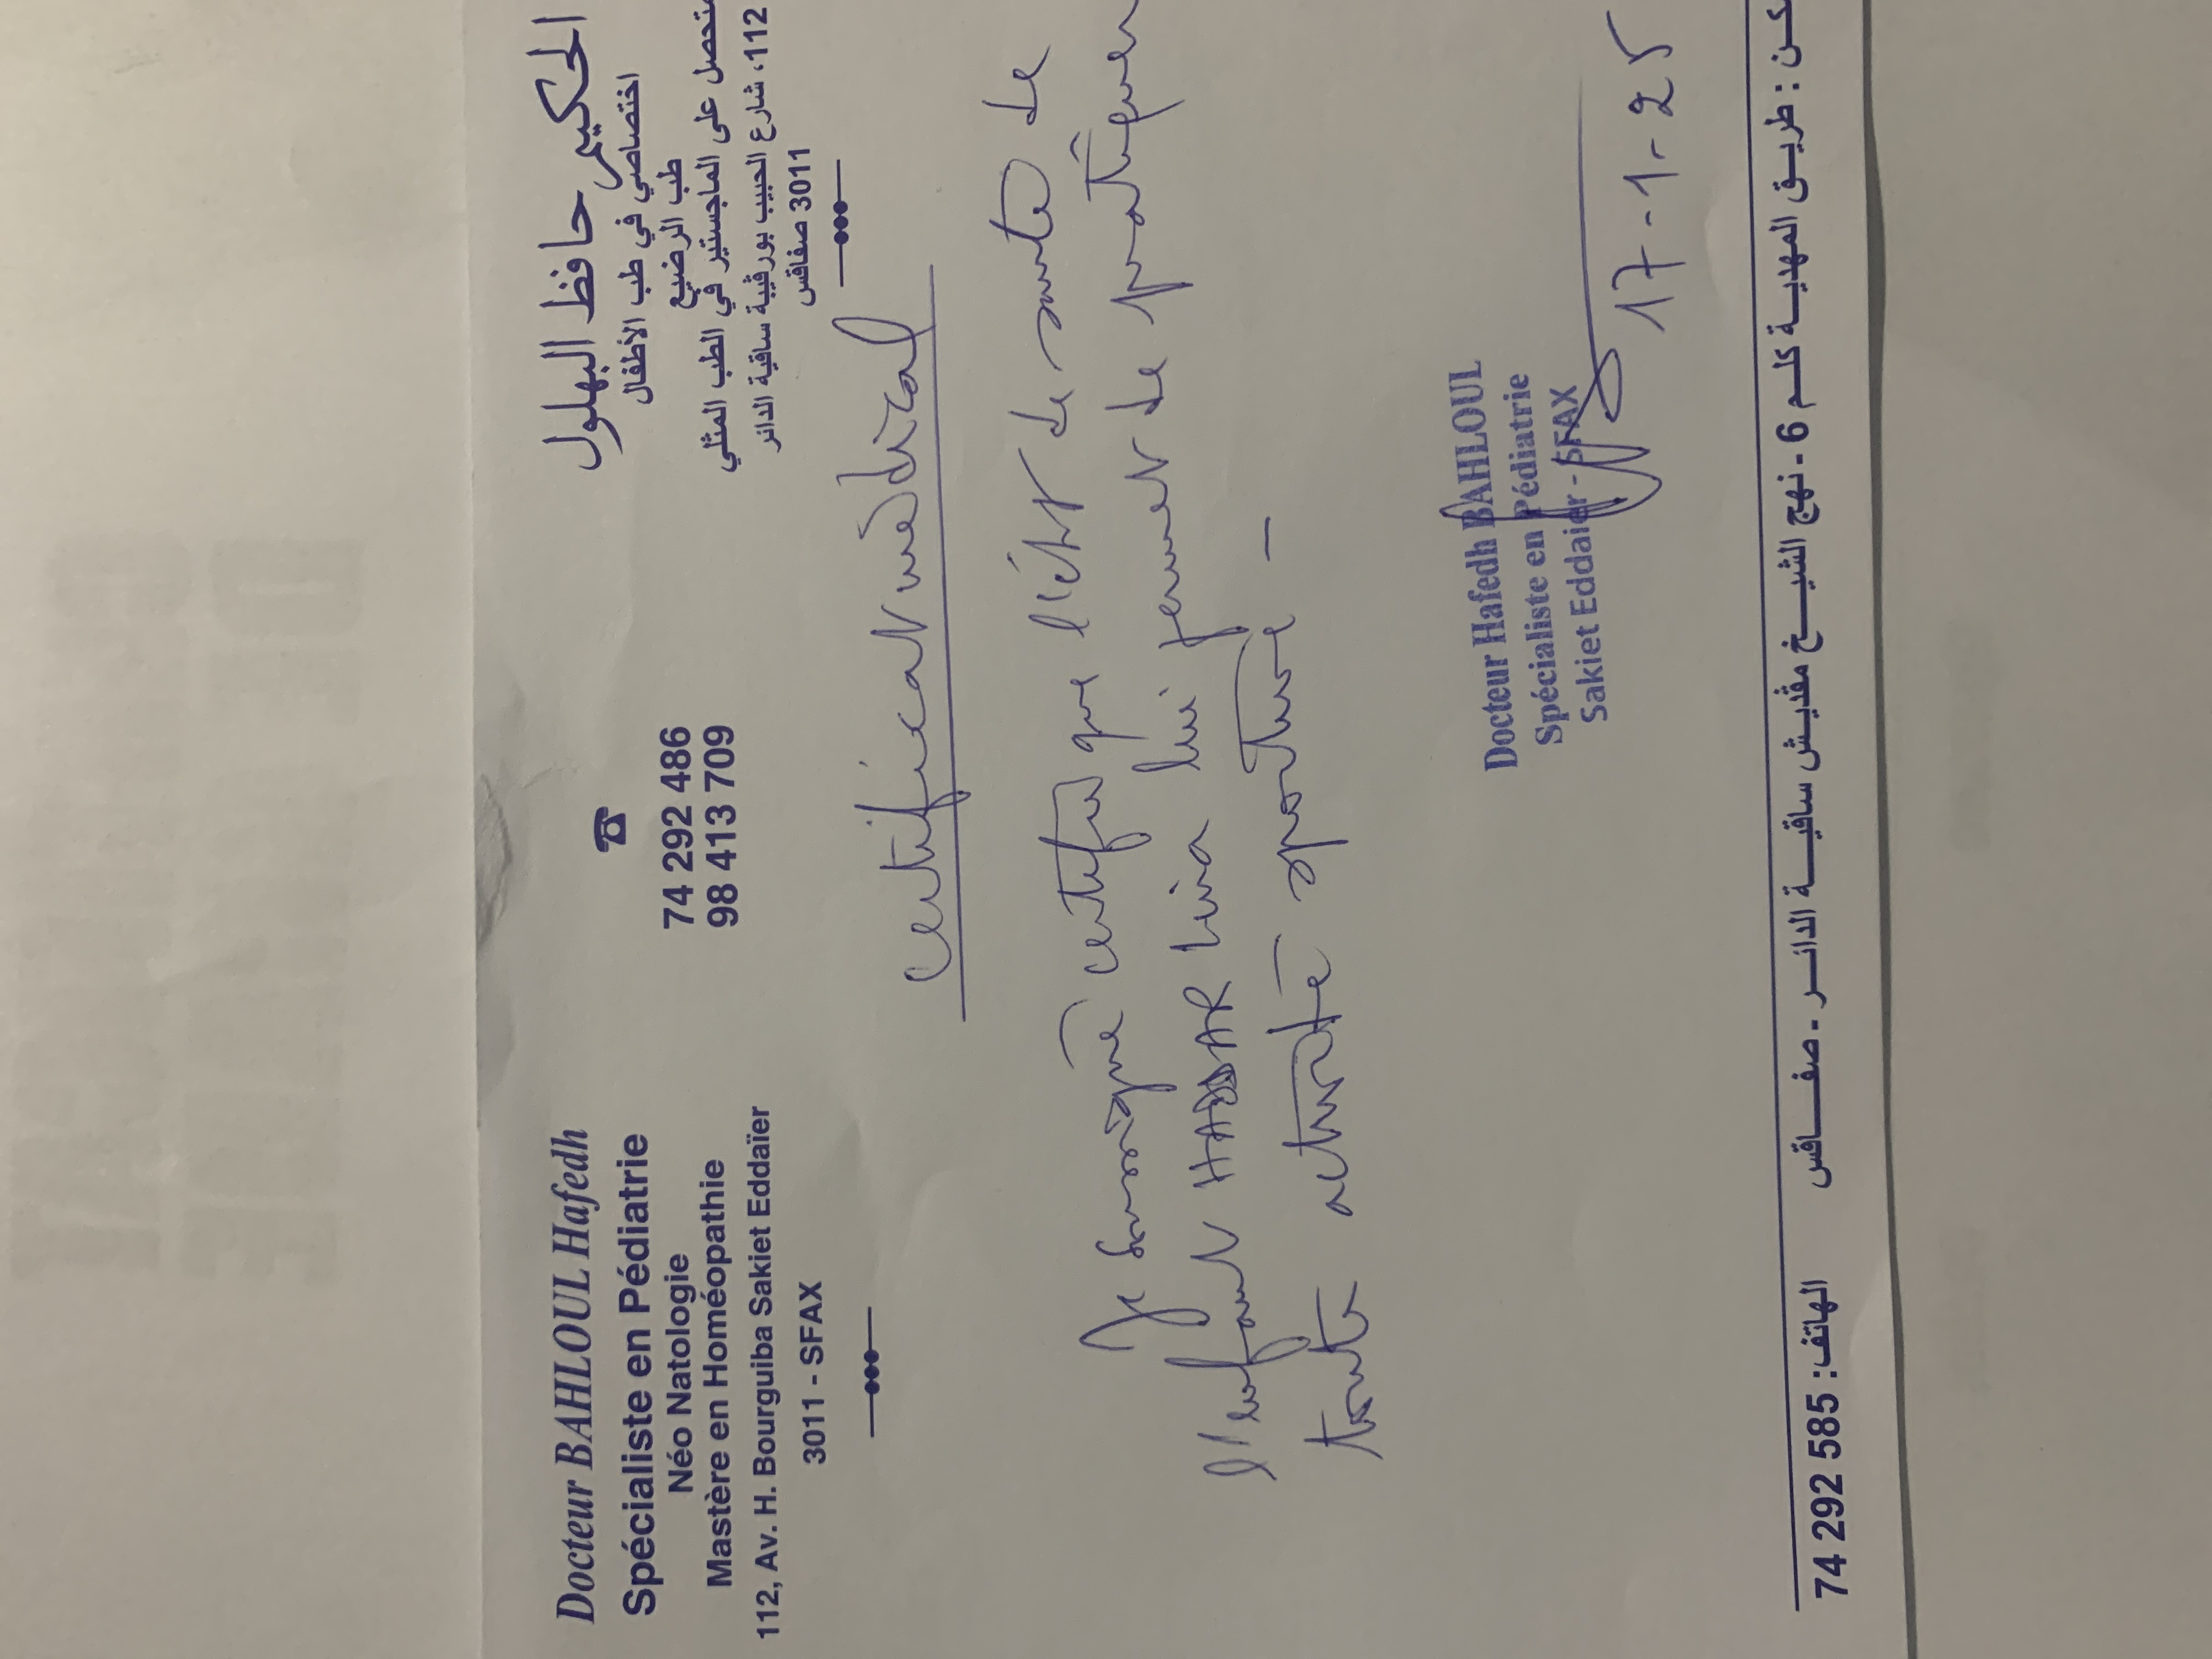 Docteur BAHLOUL Hafedh
Spécialiste en Pédiatrie
Néo Natologie
Mastère en Homéopathie
112, Av. H. Bourguiba Sakiet Eddaïer
3011 - SFAX
☎
74 292 486
98 413 709
الحكيم حافظ البهلول
اختصاصي في طب الأطفال
طب الرضيع
متحصل على الماجستير في الطب المثلي
112، شارع الحبيب بورقيبة ساقية الدائر
3011 صفاقس
Certificat médical
Je soussigné certifie que l'état de santé de
l'enfant HADDAR Lina lui permet de pratiquer
toute activité sportive -
Docteur Hafedh BAHLOUL
Spécialiste en Pédiatrie
Sakiet Eddaier - SFAX
17-1-25
طريـق المهديـة كلـم 6 - نهج الشيـخ مقديـش ساقيـة الدائـر - صفـاقس الهاتف: 74 292 585